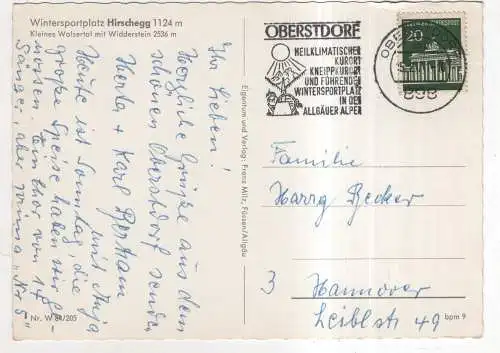 Wintersportplatz Hirschegg 1124 m
Kleines Walsertal mit Widderstein 2536 m
Ihr Lieben!
Herzliche Grüße aus dem
schönen Oberstdorf senden
Herta + Karl
mit Anja
Heute ist Sonntag, die
große Speise haben wir
Ein Chor von 14
Sänger, aber prima "Nr 5"
Nr. W 84/205
Eigentum und Verlag: Franz Milz, Füssen/Allgäu
OBERSTDORF
HEILKLIMATISCHER
KURORT
KNEIPPKURORT
UND FÜHRENDER
WINTERSPORTPLATZ
IN DEN
ALLGÄUER ALPEN
20
898
Familie
Harry Becker
3 Hannover
Leiblstr 49
bpm 9